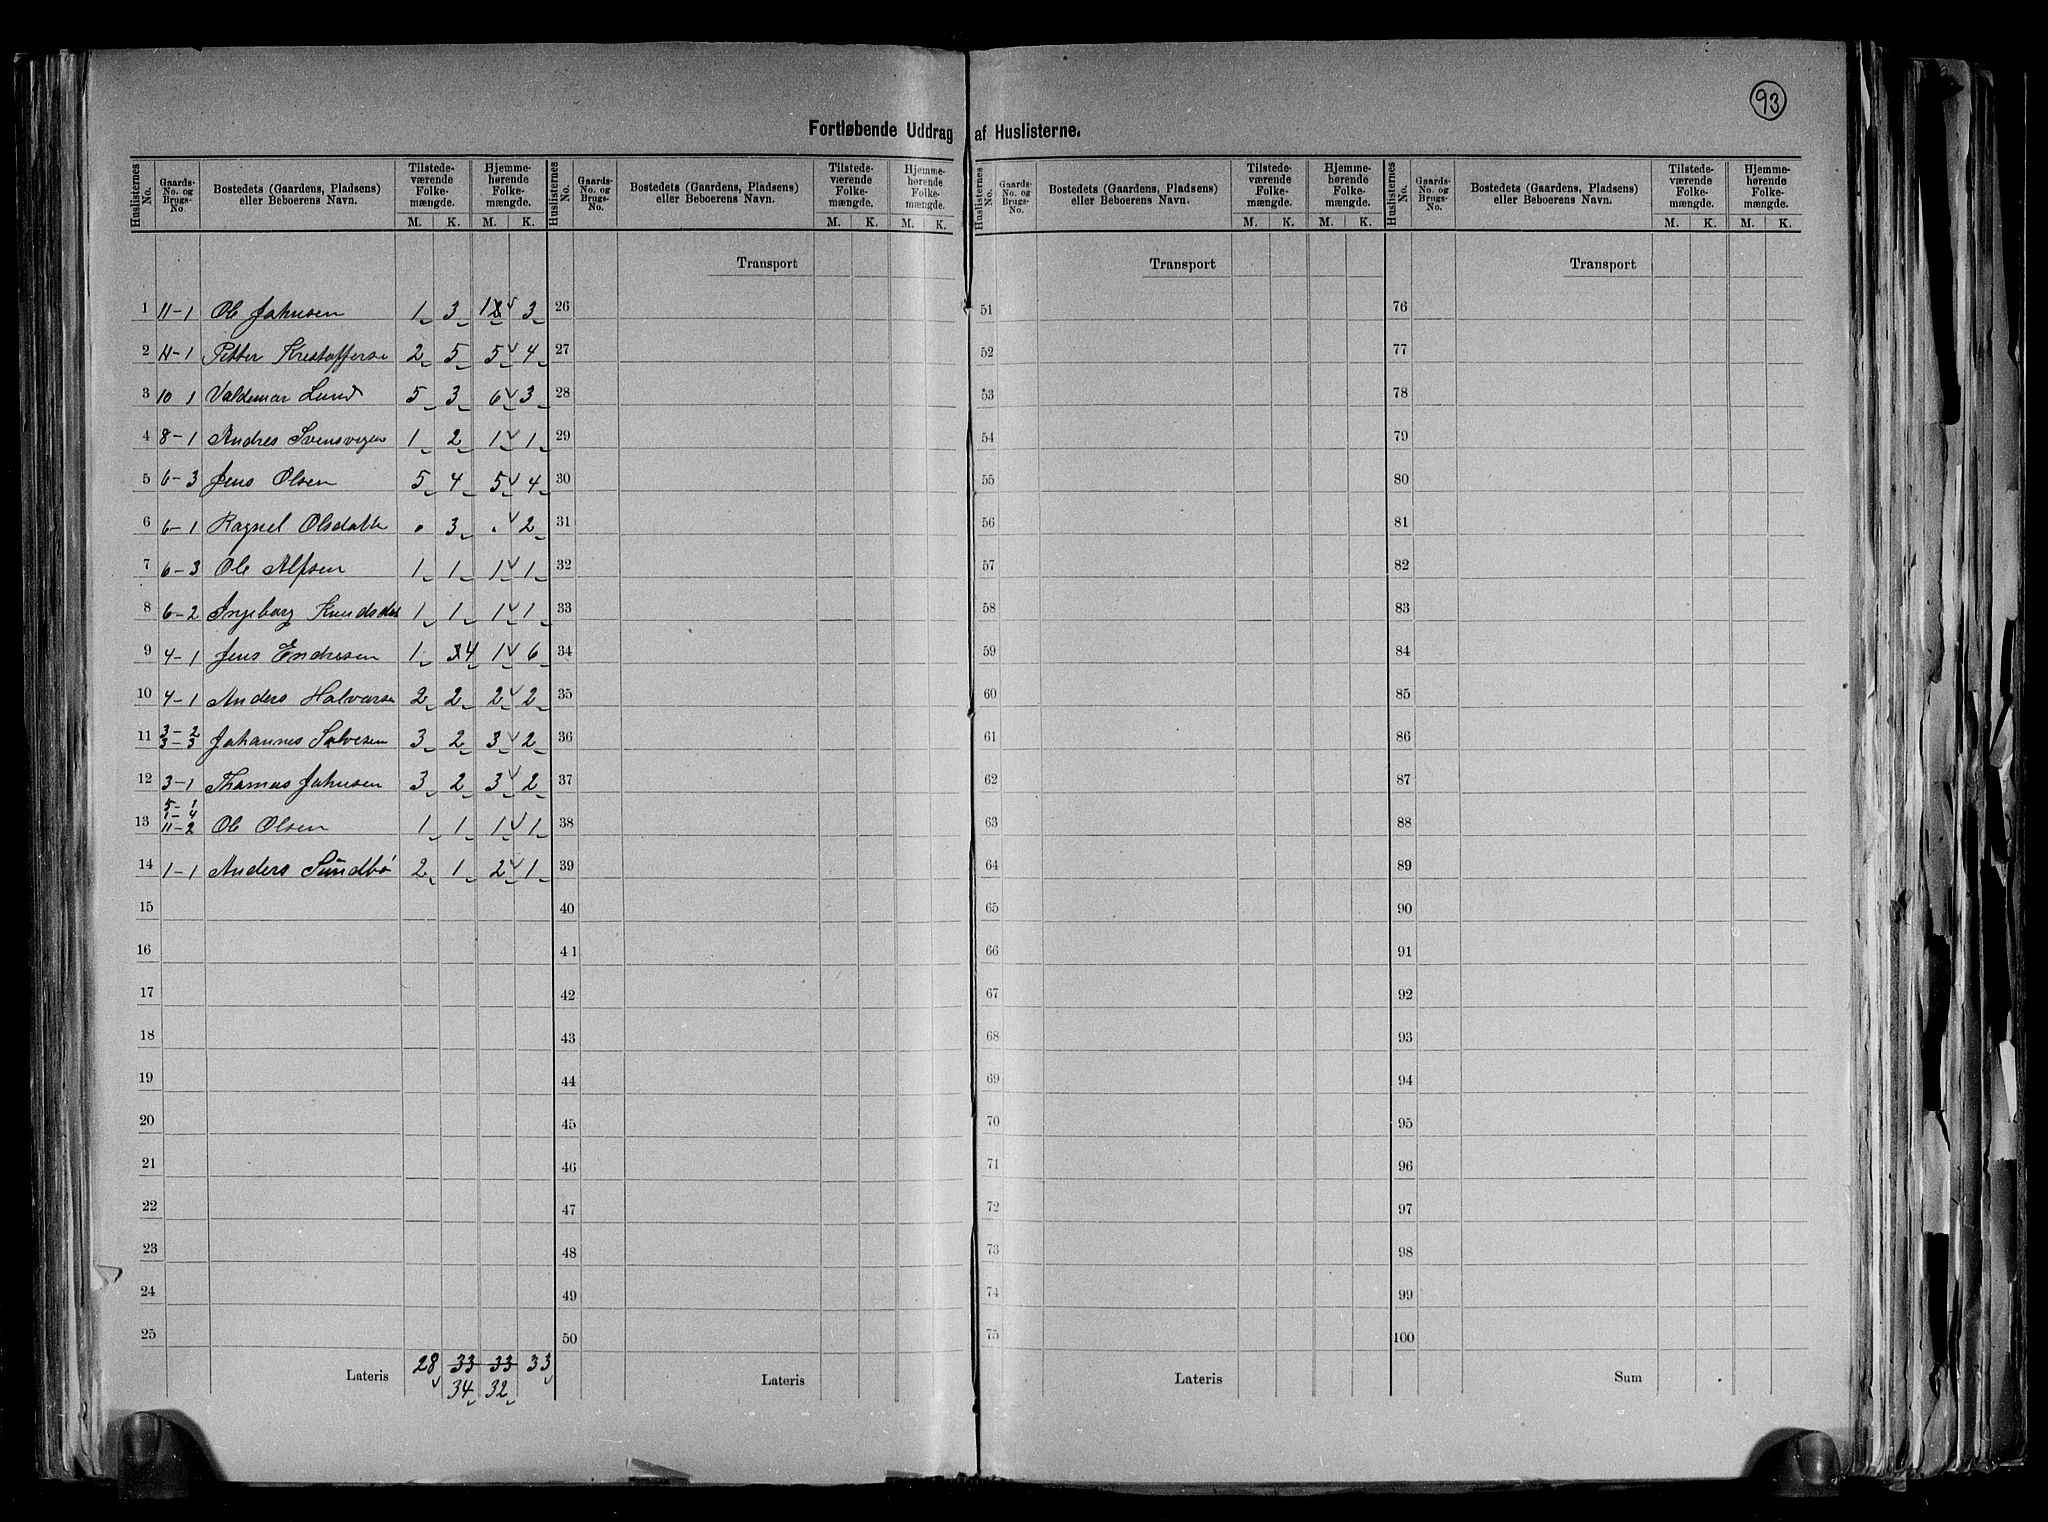 93
Fortløbende Uddrag af Huslisterne.
Huslisternes No. Gaards-No. og Brugs-No. Bostedets (Gaardens, Pladsens) eller Beboerens Navn. Tilstedeværende Folkemængde. M. K. Hjemmehørende Folkemængde. M. K.
Huslisternes No. Gaards-No. og Brugs-No. Bostedets (Gaardens, Pladsens) eller Beboerens Navn. Tilstedeværende Folkemængde. M. K. Hjemmehørende Folkemængde. M. K.
Huslisternes No. Gaards-No. og Brugs-No. Bostedets (Gaardens, Pladsens) eller Beboerens Navn. Tilstedeværende Folkemængde. M. K. Hjemmehørende Folkemængde. M. K.
Huslisternes No. Gaards-No. og Brugs-No. Bostedets (Gaardens, Pladsens) eller Beboerens Navn. Tilstedeværende Folkemængde. M. K. Hjemmehørende Folkemængde. M. K.
Transport Transport Transport
1 11-1 Ole Johnsen 1 3 1 3 26 51 76
2 11-1 Petter Krestofferse 2 5 5 4 27 52 77
3 10 1 Valdemar Lund 5 3 6 3 28 53 78
4 8-1 Andres Svensvigen 1 2 1 1 29 54 79
5 6-3 Jens Olsen 5 4 5 4 30 55 80
6 6-1 Ragnel Olsdatte . 3 . 2 31 56 81
7 6-3 Ole Alfsen 1 1 1 1 32 57 82
8 6-2 Ingeborg Knudsdat 1 1 1 1 33 58 83
9 4-1 Jens Endresen 1 3 4 1 6 34 59 84
10 4-1 Anders Halvorse 2 2 2 2 35 60 85
11 3-2 3-3 Johannes Salvesen 3 2 3 2 36 61 86
12 3-1 Thomas Johnsen 3 2 3 2 37 62 87
13 5-1 1-4 11-2 Ole Olsen 1 1 1 1 38 63 88
14 1-1 Anders Sundbø 2 1 2 1 39 64 89
15 40 65 90
16 41 66 91
17 42 67 92
18 43 68 93
19 44 69 94
20 45 70 95
21 46 71 96
22 47 72 97
23 48 73 98
24 49 74 99
25 50 75 100
Lateris 28 33 33 33 Lateris Lateris Sum
34 32